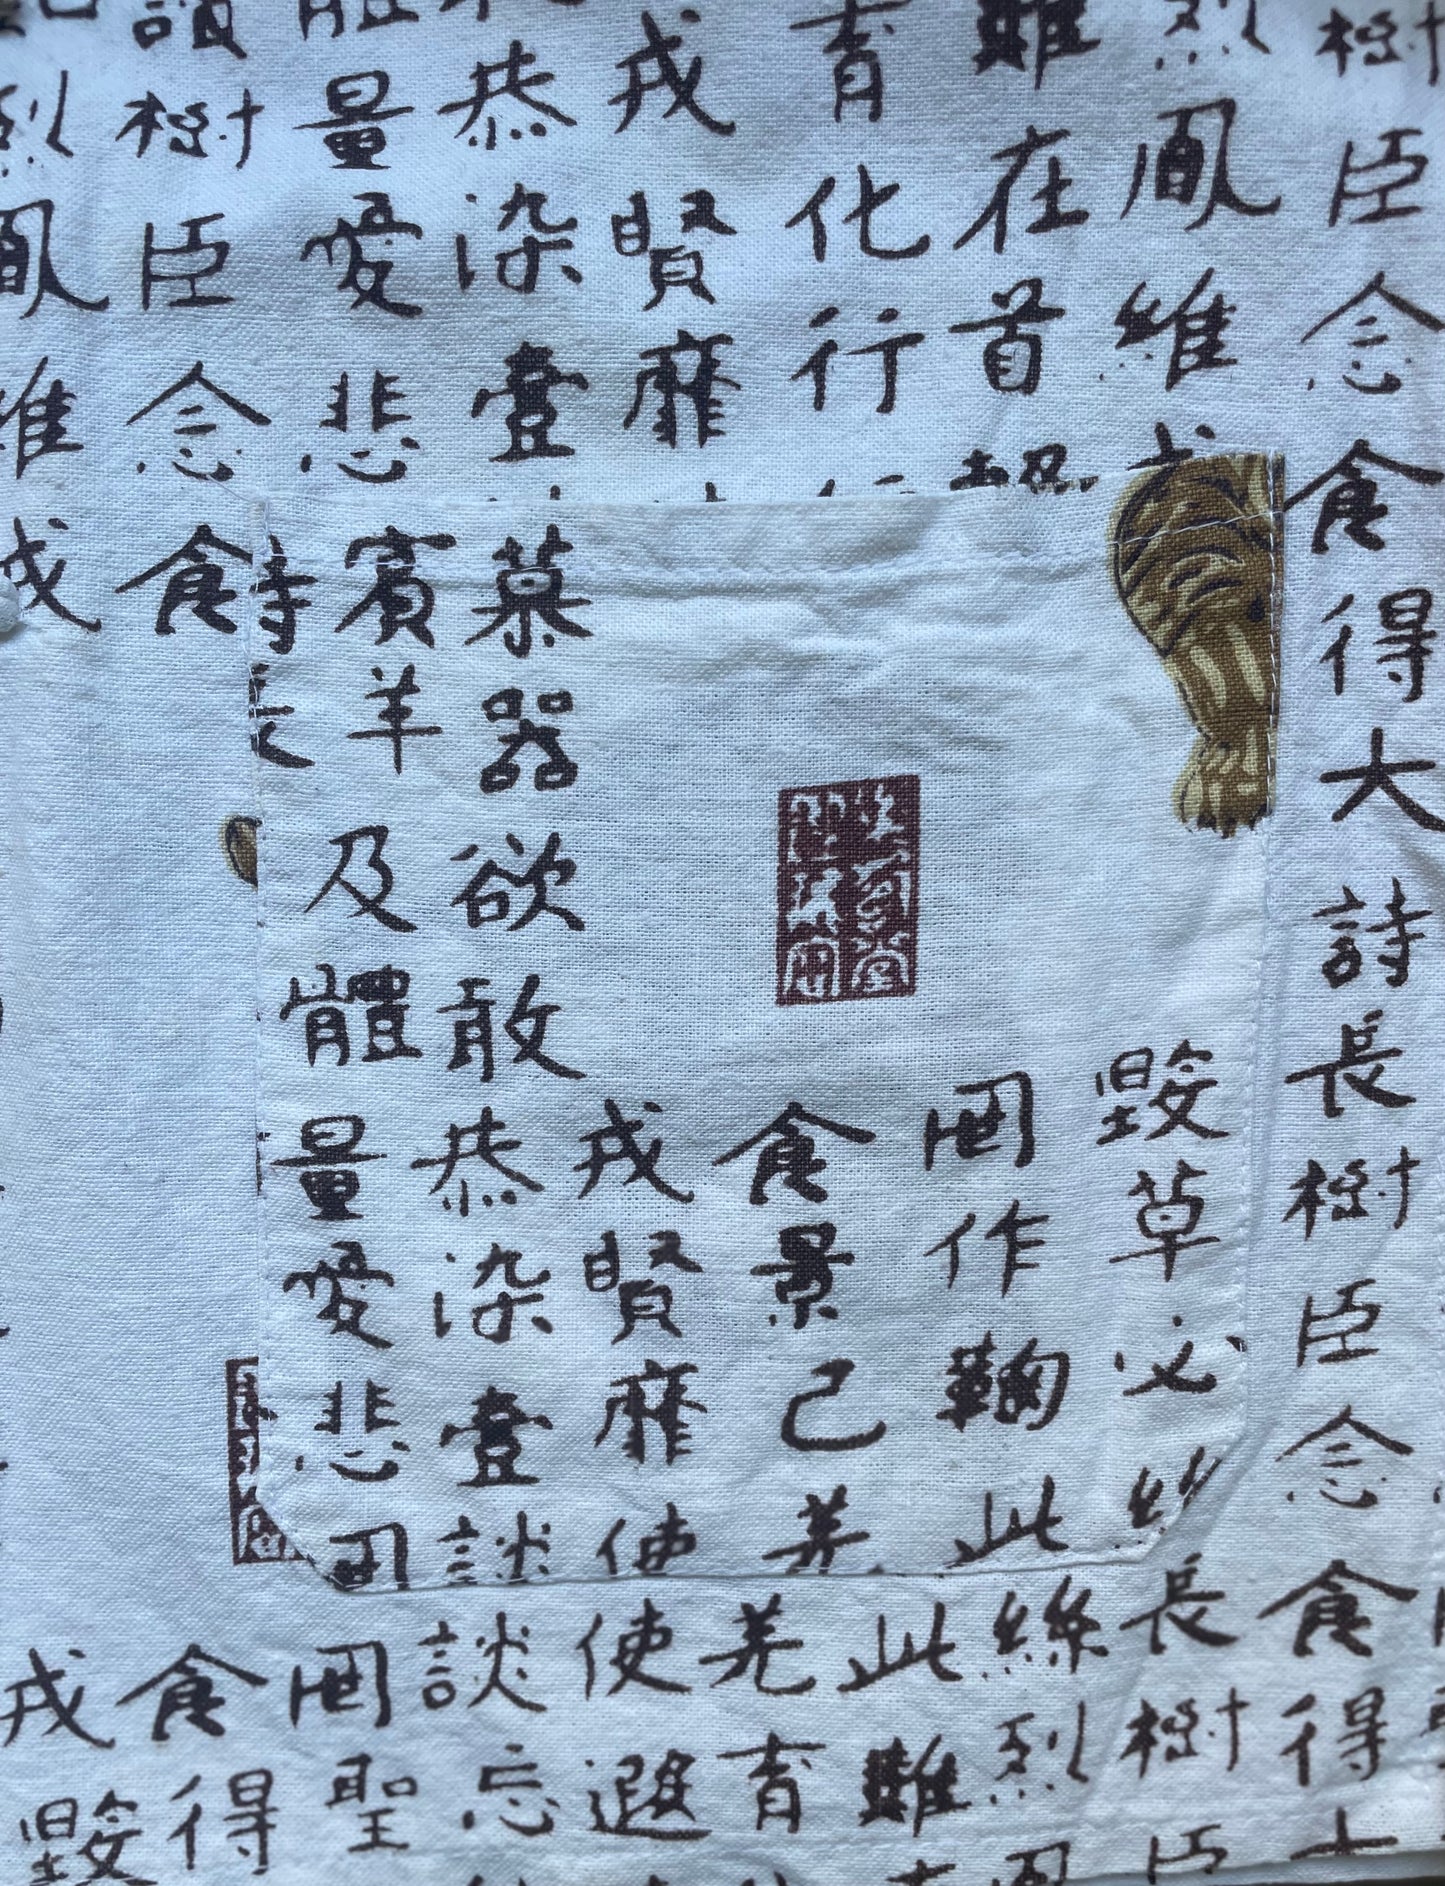 樹臣念食得大詩長樹臣念食得
烈鳳維
難在首
育化行
戎賢靡
恭染壹
體量愛悲
樹臣念食
烈鳳維
毀草必絲
罔作鞠此
食景己羌
戎賢靡使
慕器欲敢恭染壹談
賓羊及體量愛悲罔
詩長
長樹臣
絲烈鳳
此難
羌育
使遐
談忘
罔聖
食得
戎毀